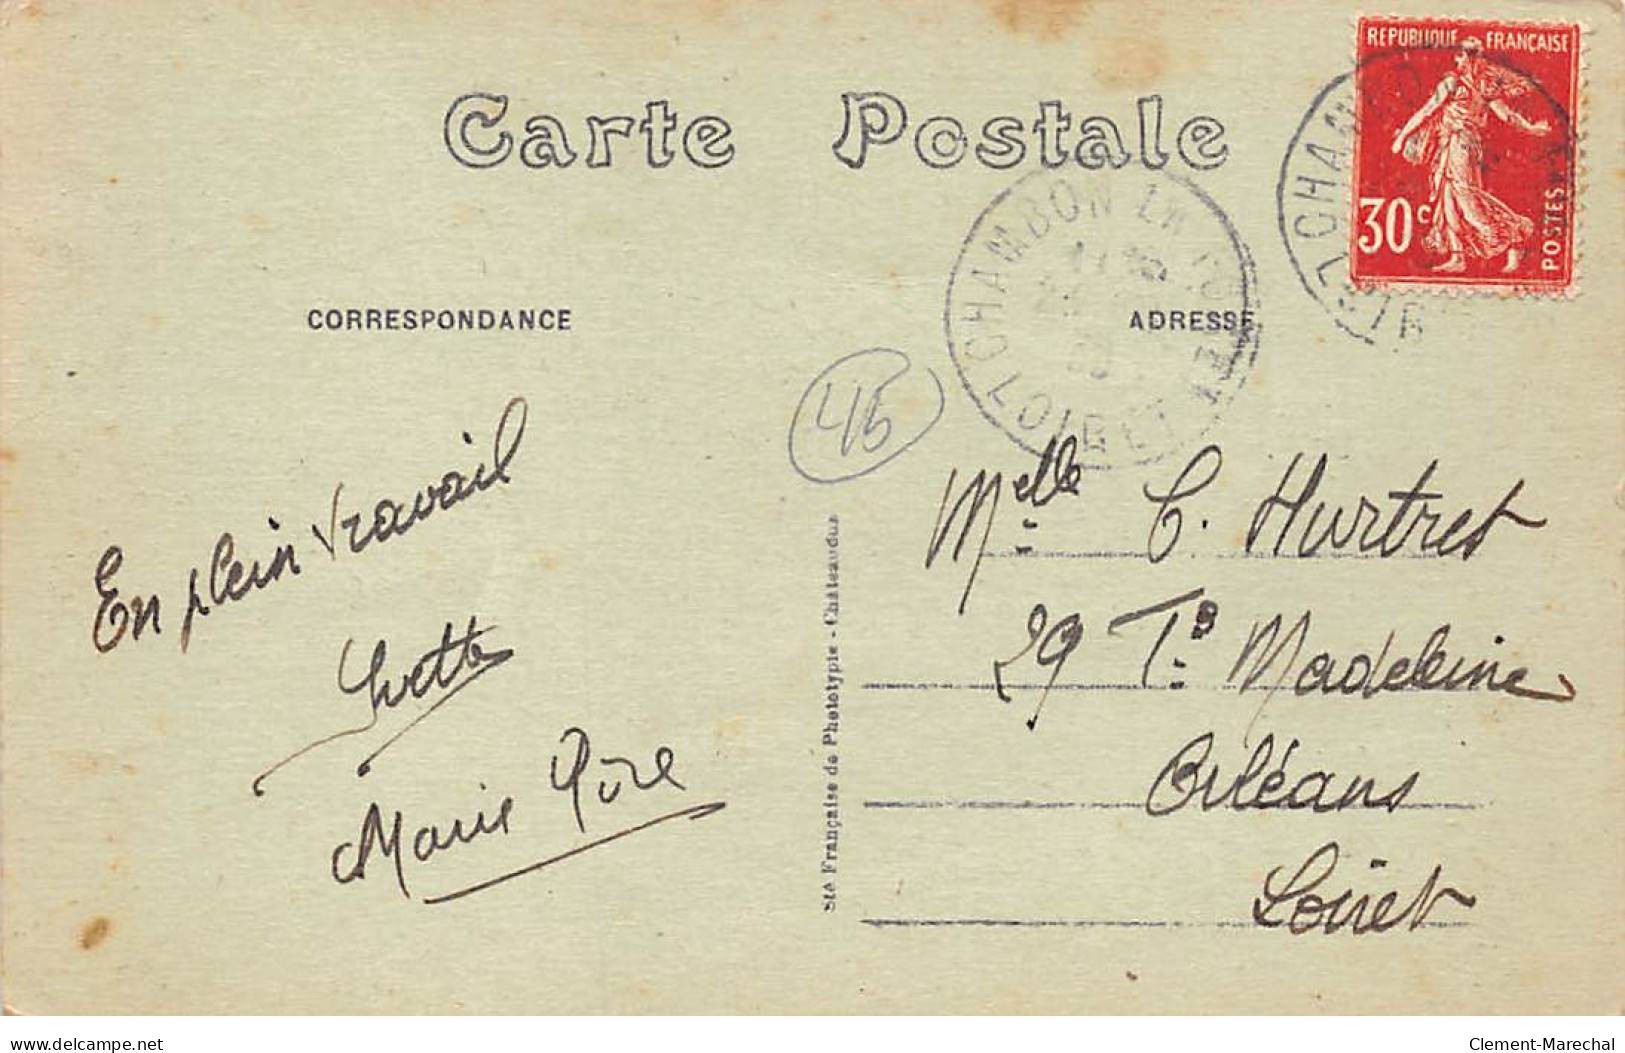 Carte Postale
REPUBLIQUE FRANÇAISE
30c
POSTES
CHAMBON LA
LOIRET
CORRESPONDANCE
ADRESSE
45
En plein travail
Marie
Sté Française de Phototypie - Chateaudun
Melle C. Hurtret
29 Fg Madeleine
Orléans
Loiret
delcampe.net
Clement-Marechal